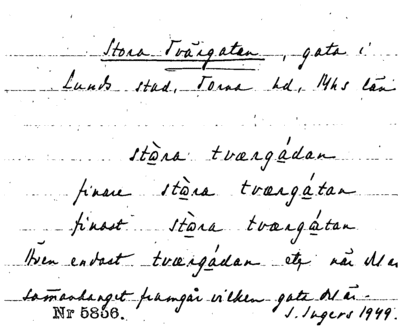 Stora Tvärgatan, gata i
Lunds stad, Torna hd, Mhs län
stòra tværgádan
finare stòra tværgátan
finast stòra tværgátan
Även endast tværgádan etc, när det av
sammanhanget framgår vilken gata det är.
Nr 5856. I. Ingers 1949.